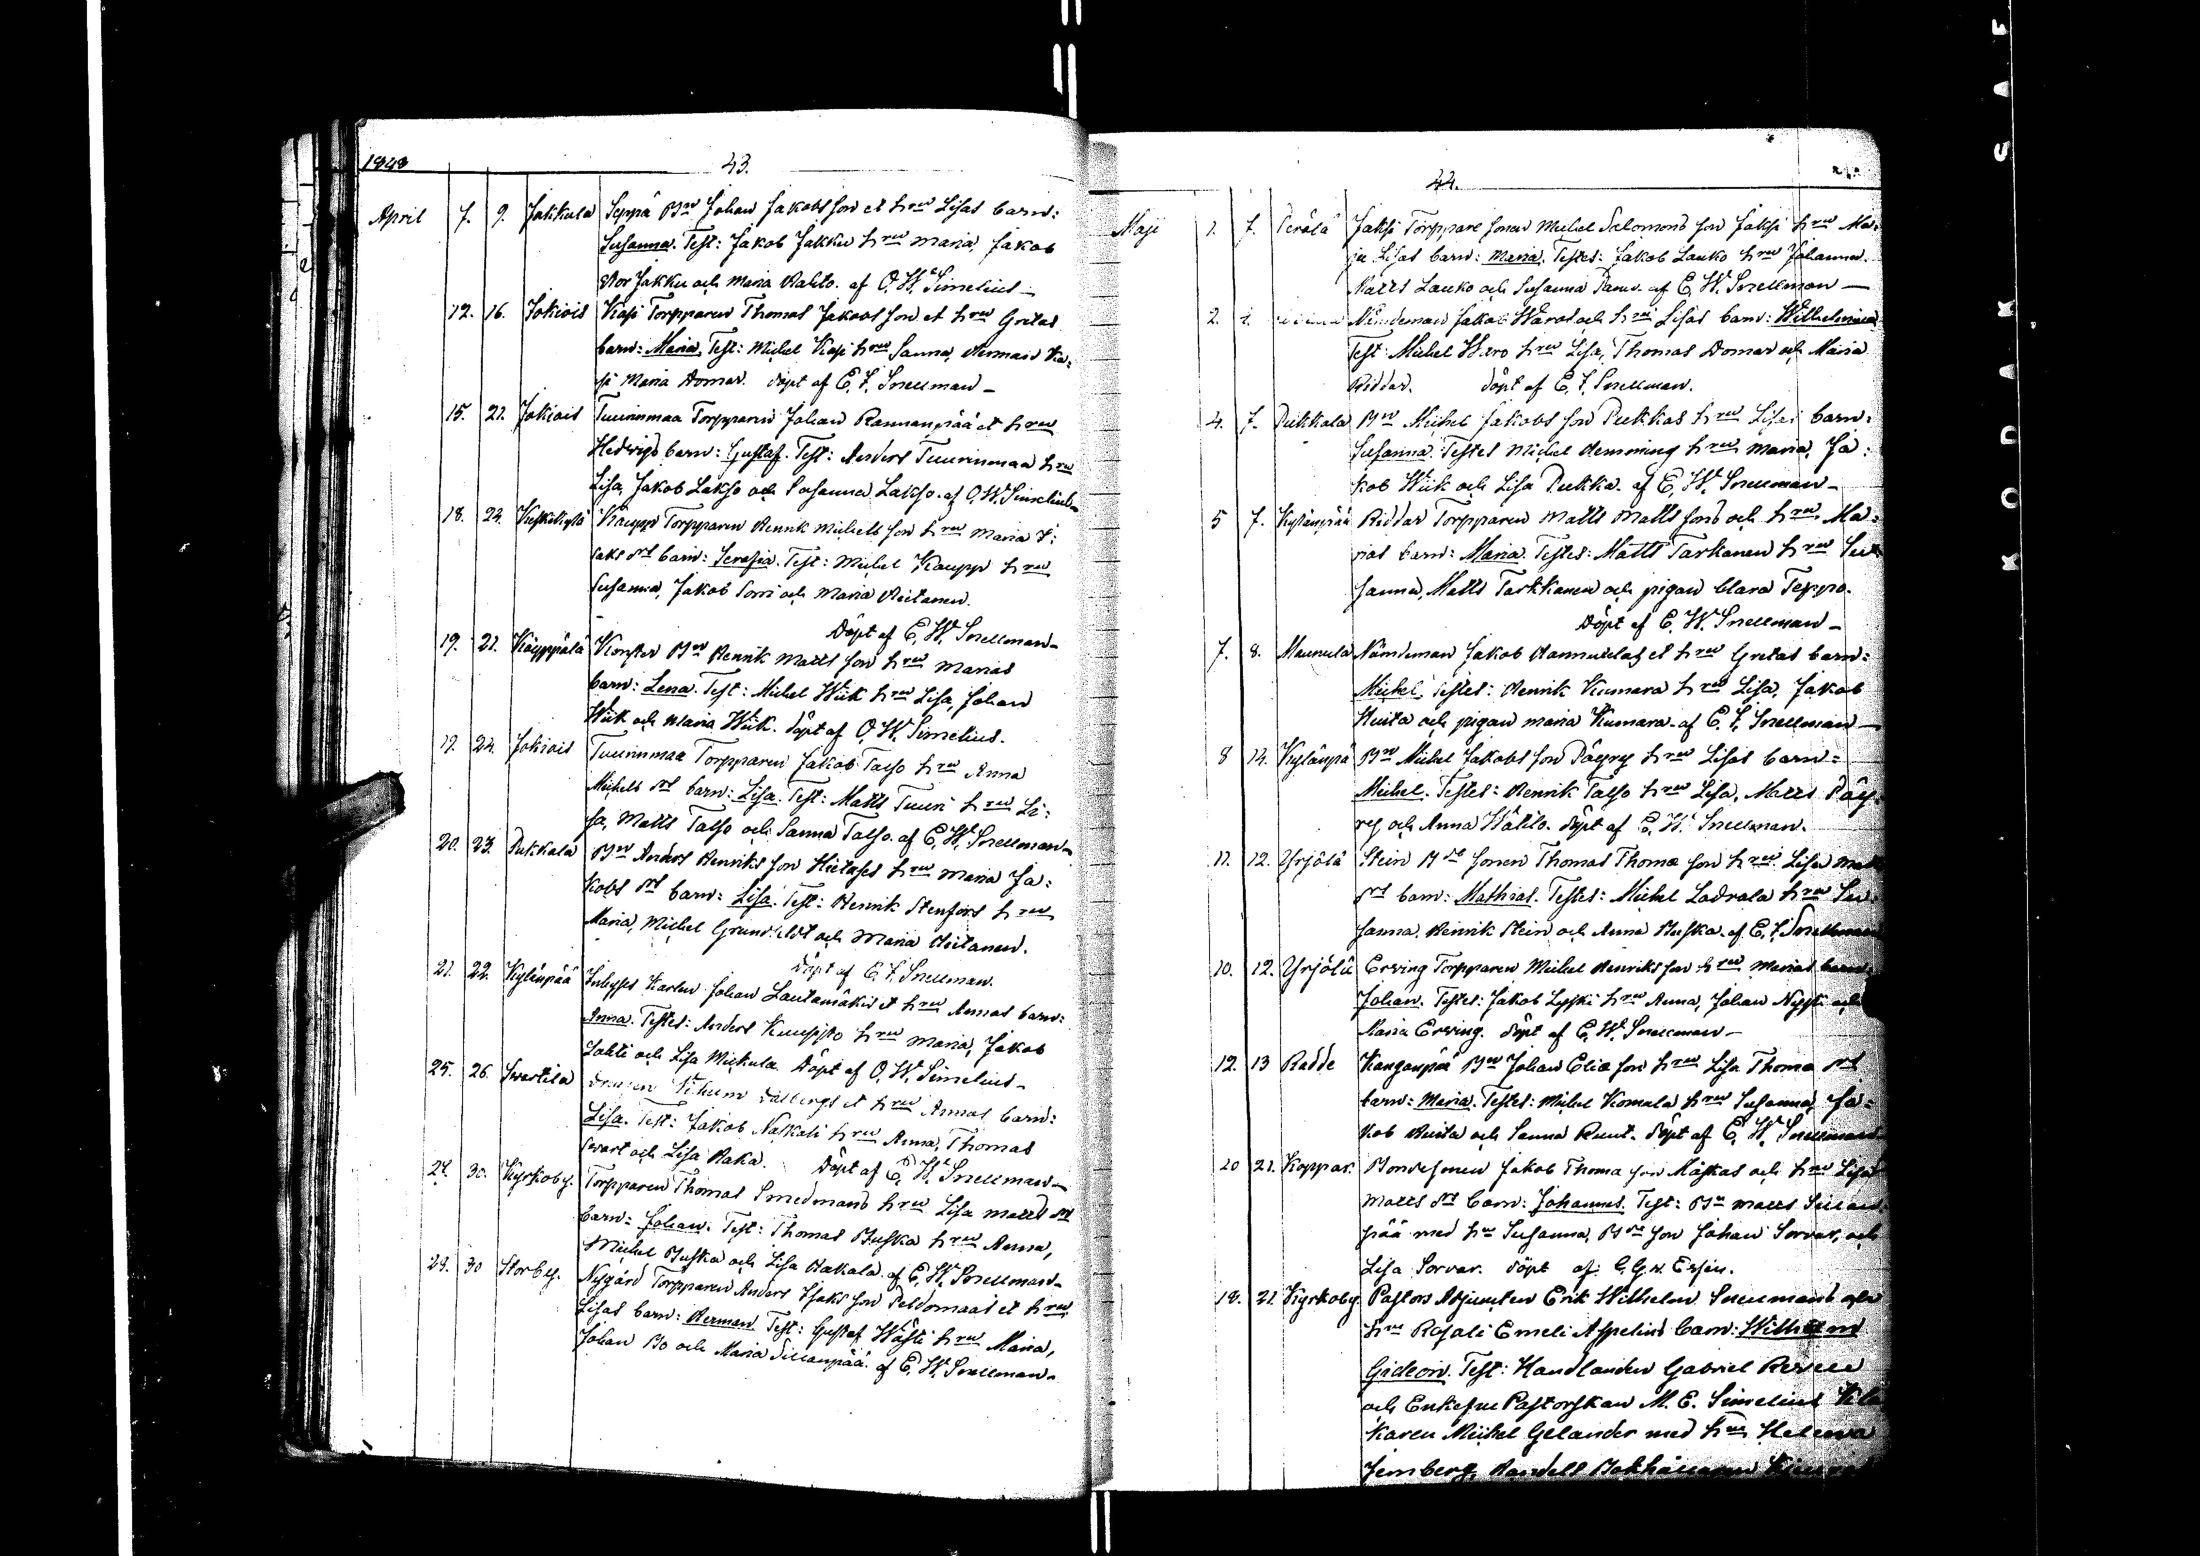 1848
43.
April 7. 9. Jakkula Seppä Bn Johan Jakobsson et hru Lisas barn:
Susanna. Test: Jakob Jakku hru Maria, Jakob
Stor Jakku och Maria Rahto. af O. W. Simelius
12. 16. Jokiois Kasi Torpparen Thomas Jakobsson et hru Gretas
barn: Maria. Test: Michel Kasi hru Sanna, Herman Ka-
si Maria Domar. döpt af E. F. Snellman
15. 21. Jokiois Tuurinmaa Torpparen Johan Rannanpää et hru
Hedvigs barn: Gustaf. Test: Anders Tuurinmaa hru
Lisa, Jakob Lakso och Susanna Lakso. af O. W. Simelius
18. 24. Keskikylä Kaupp Torpparen Henrik Michelsson hru Maria I-
saks dr barn: Serafia. Test: Michel Kaupp hru
Susanna, Jakob Sorri och Maria Hietanen.
Döpt af E. W. Snellman
19. 21. Käyppälä Korster Bn Henrik Mattsson hru Marias
barn: Lena. Test: Michel Wiik hru Lisa, Johan
Wiik och Maria Wiik. döpt af O. W. Simelius.
19. 24. Jokiois Tuurinmaa Torpparen Jakob Talso hru Anna
Michels dr barn: Lisa. Test: Matts Tuuri hru Li-
sa, Matts Talso och Sanna Talso. af E. W. Snellman
20. 23. Pukkala Bn Anders Henriksson Hietases hru Maria Ja-
kobs dr barn: Lisa. Test: Henrik Stenfors hru
Maria, Michel Grundfeldt och Maria Hietanen.
Döpt af E. F. Snellman.
21. 22. Kylänpää Inhyses Karlen Johan Lautamäkis et hru Annas barn:
Anna. Testes: Anders Kuuppo hru Maria, Jakob
Lahti och Lisa Mickula. Döpt af O. W. Simelius
25. 26. Swartila Drengen Wilhelm Dallbergs et hru Annas barn:
Lisa. Test: Jakob Naskali hru Anna, Thomas
Swart och Lisa Raka. Döpt af E. W. Snellman
24. 30. Kyrkoby. Torpparen Thomas Smedmans hru Lisa Matts dr
barn: Johan. Test: Thomas Buska hru Anna,
Michel Buska och Lisa Hakala. af E. W. Snellman
29. 30 Storby. Nygård Torpparen Anders Isaksson Peldomaas et hru
Lisas barn: Herman. Test: Gustaf Wästi hru Maria,
Johan Bo och Maria Sillanpää. af E. W. Snellman
44.
Maji 1. 7. Perälä Jaksi Torppare sonen Michel Salomonsson Jaksi hru Ma-
ja Lisas barn: Maria. Testes: Jakob Lauko hru Johanna.
Matts Lauko och Susanna af E. W. Snellman
2. Nämdeman Jakob Waros och hru Lisas barn: Wilhelmina
Test: Michel Waro hru Lisa, Thomas Domar och Maria
Riddar. döpt af E. F. Snellman.
4. 7. Pukkala Bn Michel Jakobsson Pukkas hru Lisas barn:
Susanna. Testes Michel Hemming hru Maria, Ja-
kob Wiik och Lisa Pukka. af E. W. Snellman
5 7. Kylänpää Riddar Torpparen Matts Mattssons och hru Ma-
rias barn: Maria. Testes: Matts Tarkanen hru Su-
sanna, Matts Tarkkanen och pigan Clara Teppo.
Döpt af E. W. Snellman
7. 8. Maunula Nämdeman Jakob Hannukelas et hru Gretas barn:
Michel. Testes: Henrik Kumara hru Lisa, Jakob
Huita och pigan Maria Kumara. af E. F. Snellman
8 14. Kylänpä Bn Michel Jakobsson Päyry hru Lisas barn:
Michel. Testes: Henrik Talso hru Lisa, Matts Päy-
ry och Anna Wähto. döpt af E. W. Snellman.
11. 12. Yrjölä Stein Bde sonen Thomas Thomæ son hru Lisa Matts
dr barn: Mathias. Testes: Michel Ladvala hru Su-
sanna. Henrik Stein och Anna Buska. af E. F. Snellman
10. 12. Yrjölä Erving Torpparen Michel Henriksson hru Marias barn:
Johan. Testes: Jakob Lyski hru Anna, Johan Nysti och
Maria Erving. döpt af E. W. Snellman
12. 13 Radde Kanganpää Bn Johan Eliæ son hru Lisa Thomæ dr
barn: Maria. Testes: Michel Komula hru Susanna, Ja-
kob Huita och Sanna Ruut. döpt af E. W. Snellman
20 21. Koppar. Bondesonen Jakob Thomæ son Mäskas och hru Lisas
Matts dr barn: Johannes. Test: Bn Matts Sillan-
pää med hru Susanna, Bde son Johan Sorvar, och
Lisa Sorvar. döpt af:
18. 21. Kyrkoby Pastors Adjuncten Erik Wilhelm Snellmans och
hru Rosali Emeli Aspelins barn: Wilhelm
Gideon. Test: Handlanden Gabriel
och Enkefru Pastorskan M. E. Simelius
Michel Gelander med hru Helena